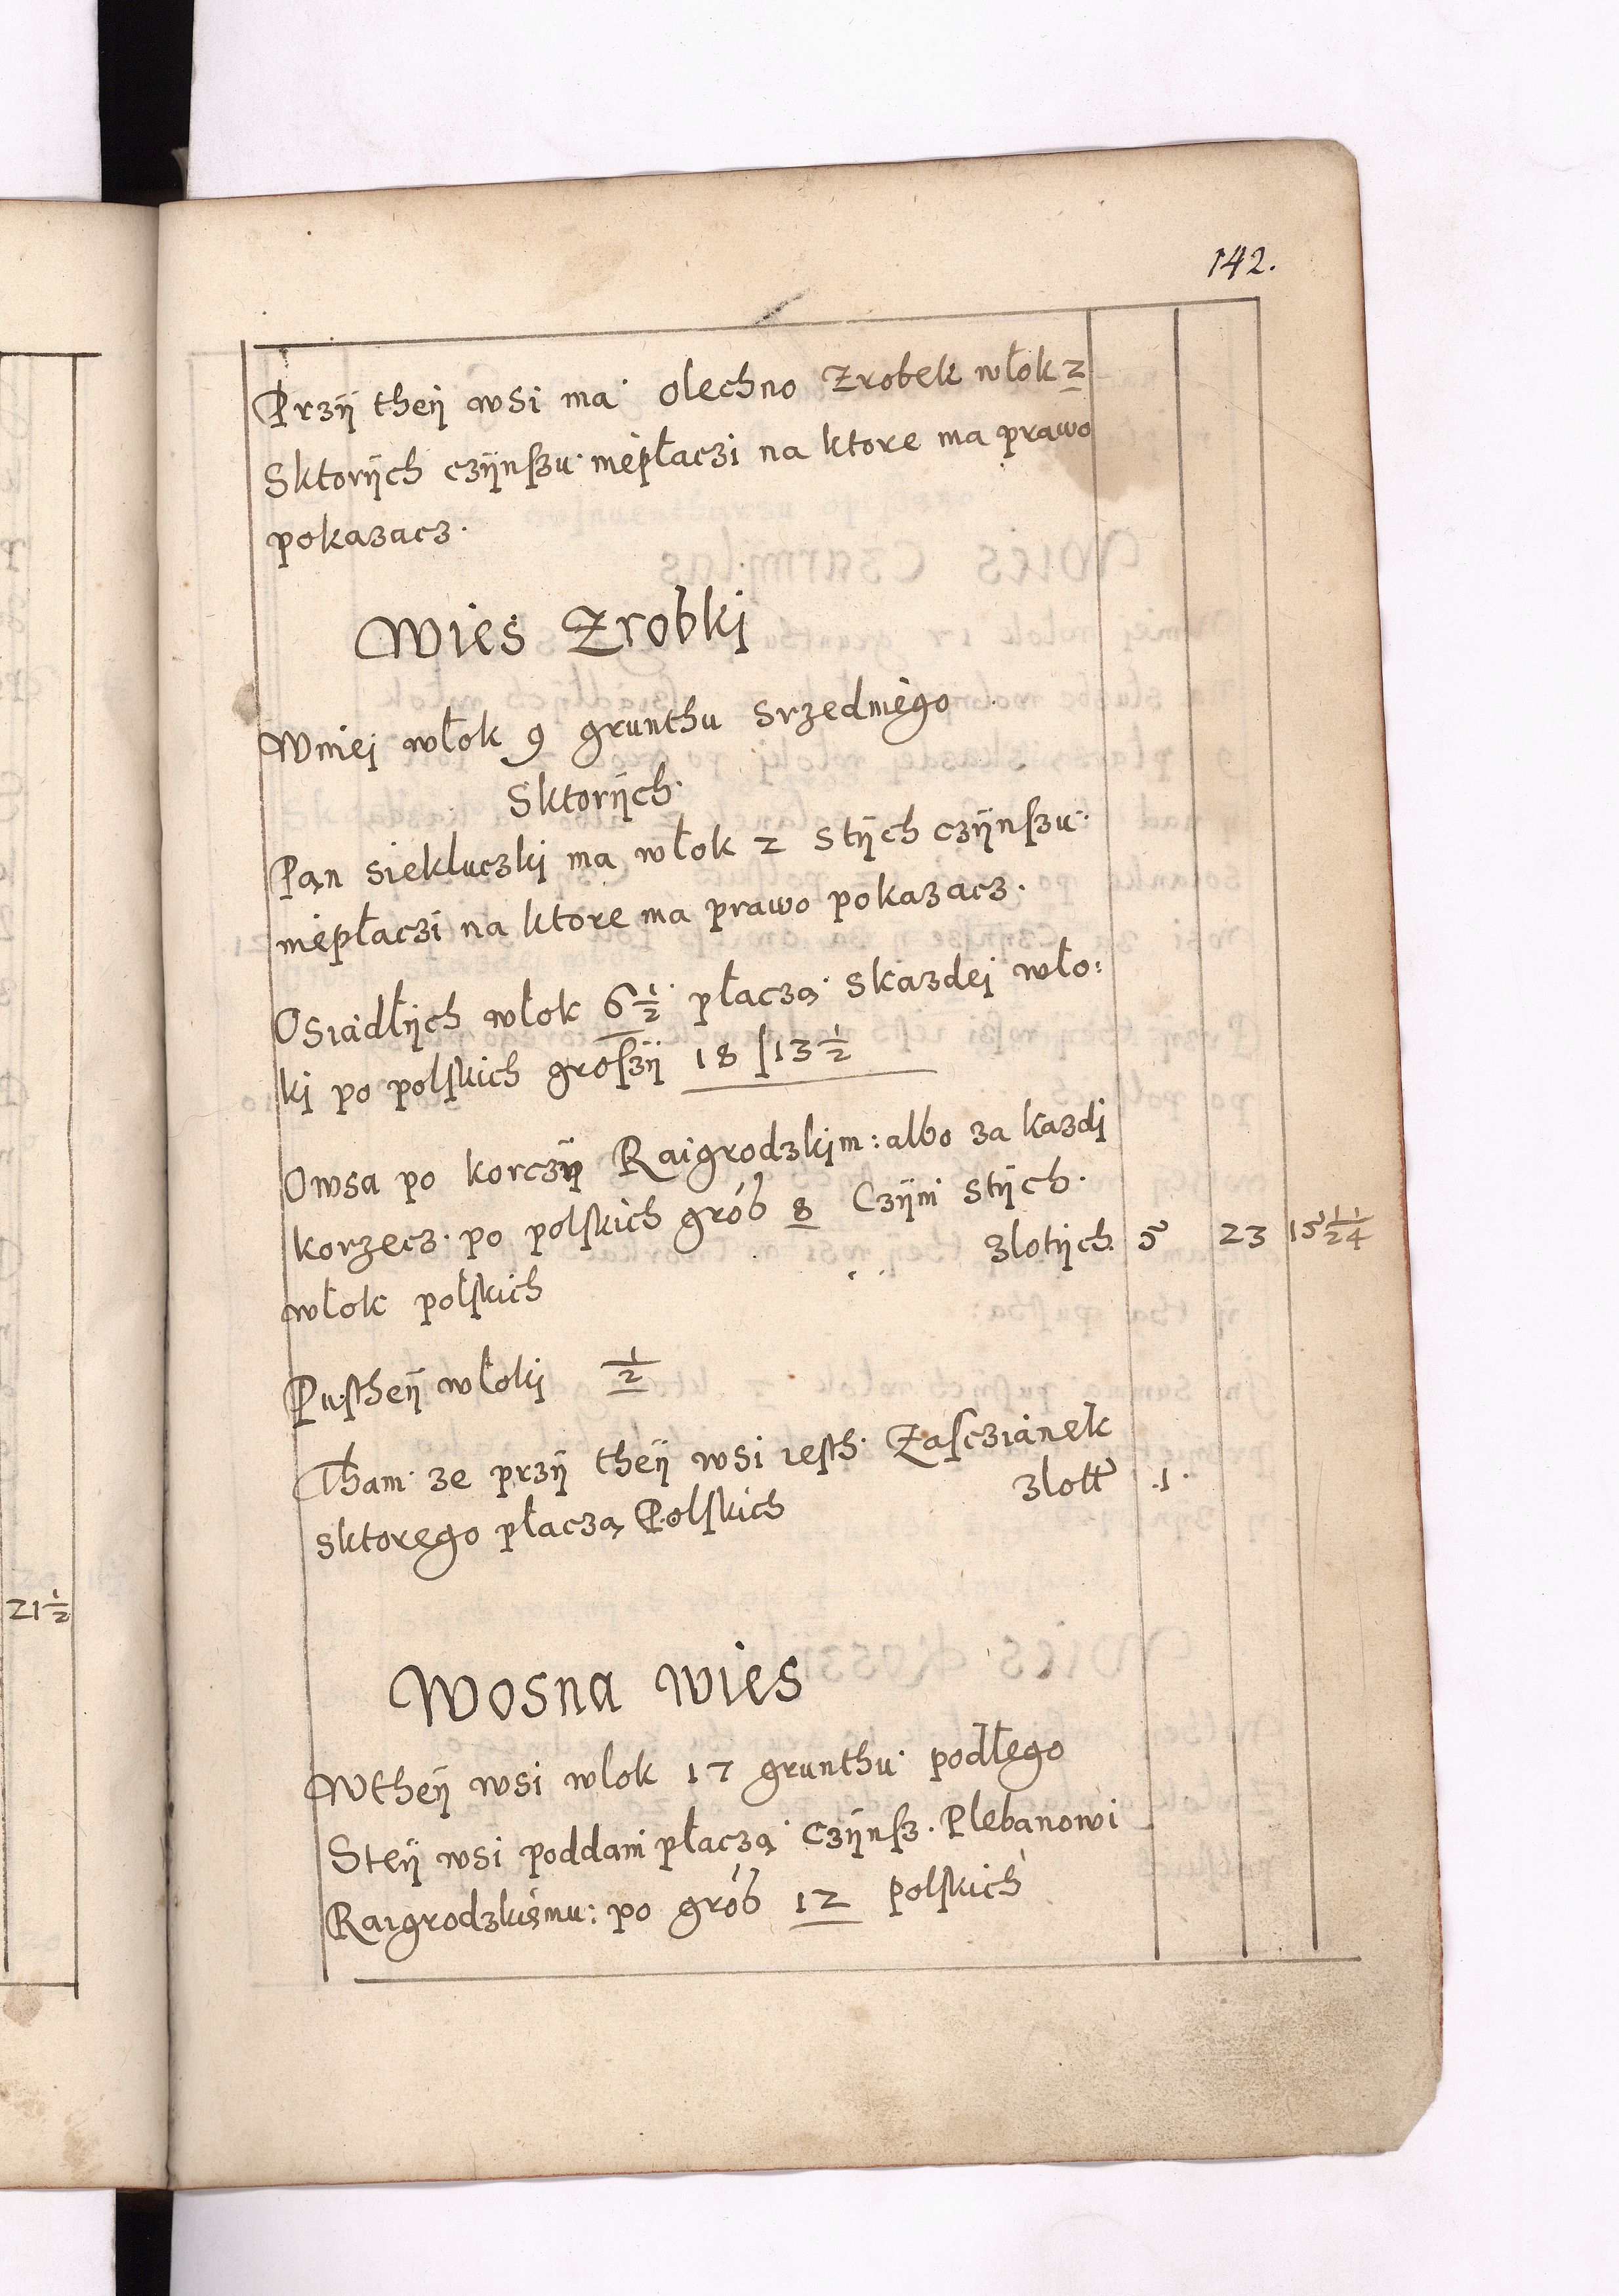 142.
Przÿ theÿ wsi ma olechno Zrobek włok 2
Sktorÿch czÿnſzu niepłaczi na ktore ma prawo
pokazacz.
Wies Zrobki
Wniej włok 9 grunthu srzedniego
Sktorÿch
Pąn siekluczkj ma włok 2 stÿch czÿnſzu
niepłaczi na ktore ma prawo pokazacz.
Osiadłÿch włok 6 1/2 płaczą skazdej wło:
kj po polſkich groſzÿ 18 ſ 13 1/2
Owsa po korczÿ Raigrodzkim: albo za kazdj
korzecz. po polſkich groß 8 Czÿni stÿch
włok polſkich zlotÿch. 5 23 15 1/2 1/4
Puſtheÿ włokj 1/2
Tham ze przÿ theÿ wsi ieſth Zaſczianek
sktorego płaczą Polſkich złott .1.
Wosna wies
Wtheÿ wsi wlok 17 grunthu podłego
Steÿ wsi poddani płaczą czÿnſz. Plebanowi
Raigrodzkiemu: po groß 12 polſkich
21 1/2